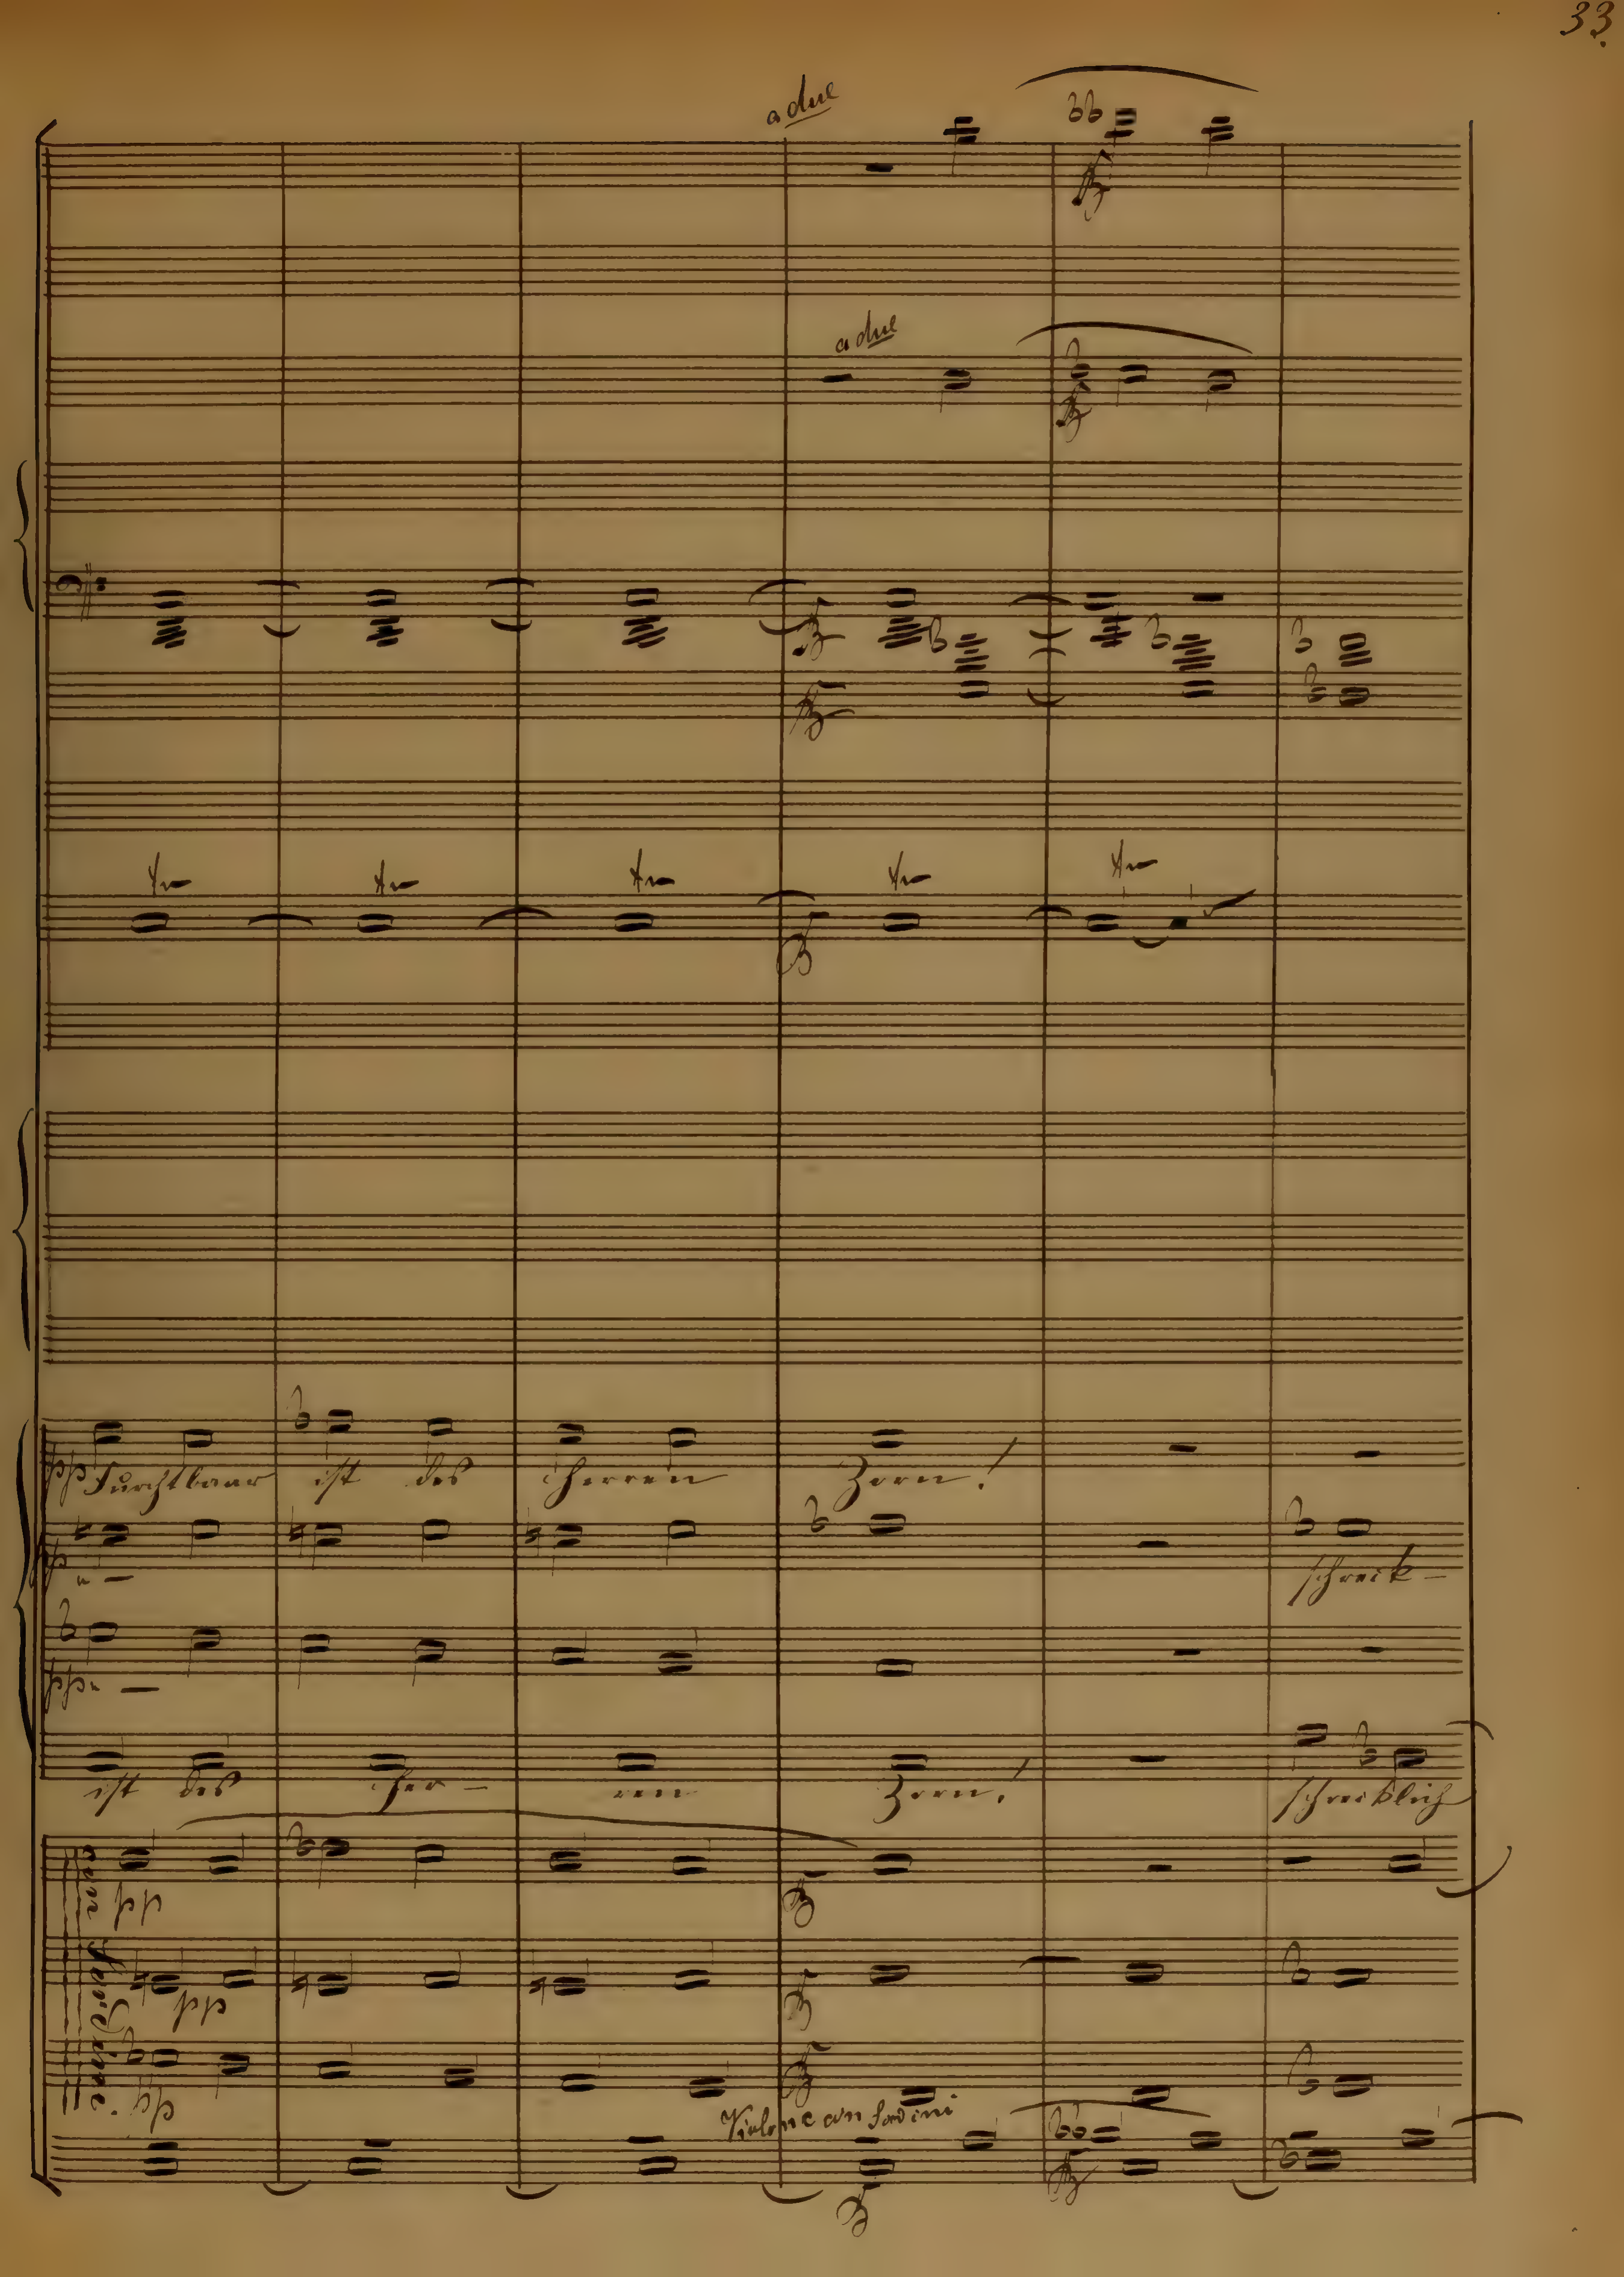 33.
a due
bb
a due
tr tr tr tr tr
pp Furchtbaar ist des Herren Zorn!
schreck-
pp
ist des Her- ren Zorn! schrecklich
con Sordini.
pp
pp
pp
Violone con Sordini